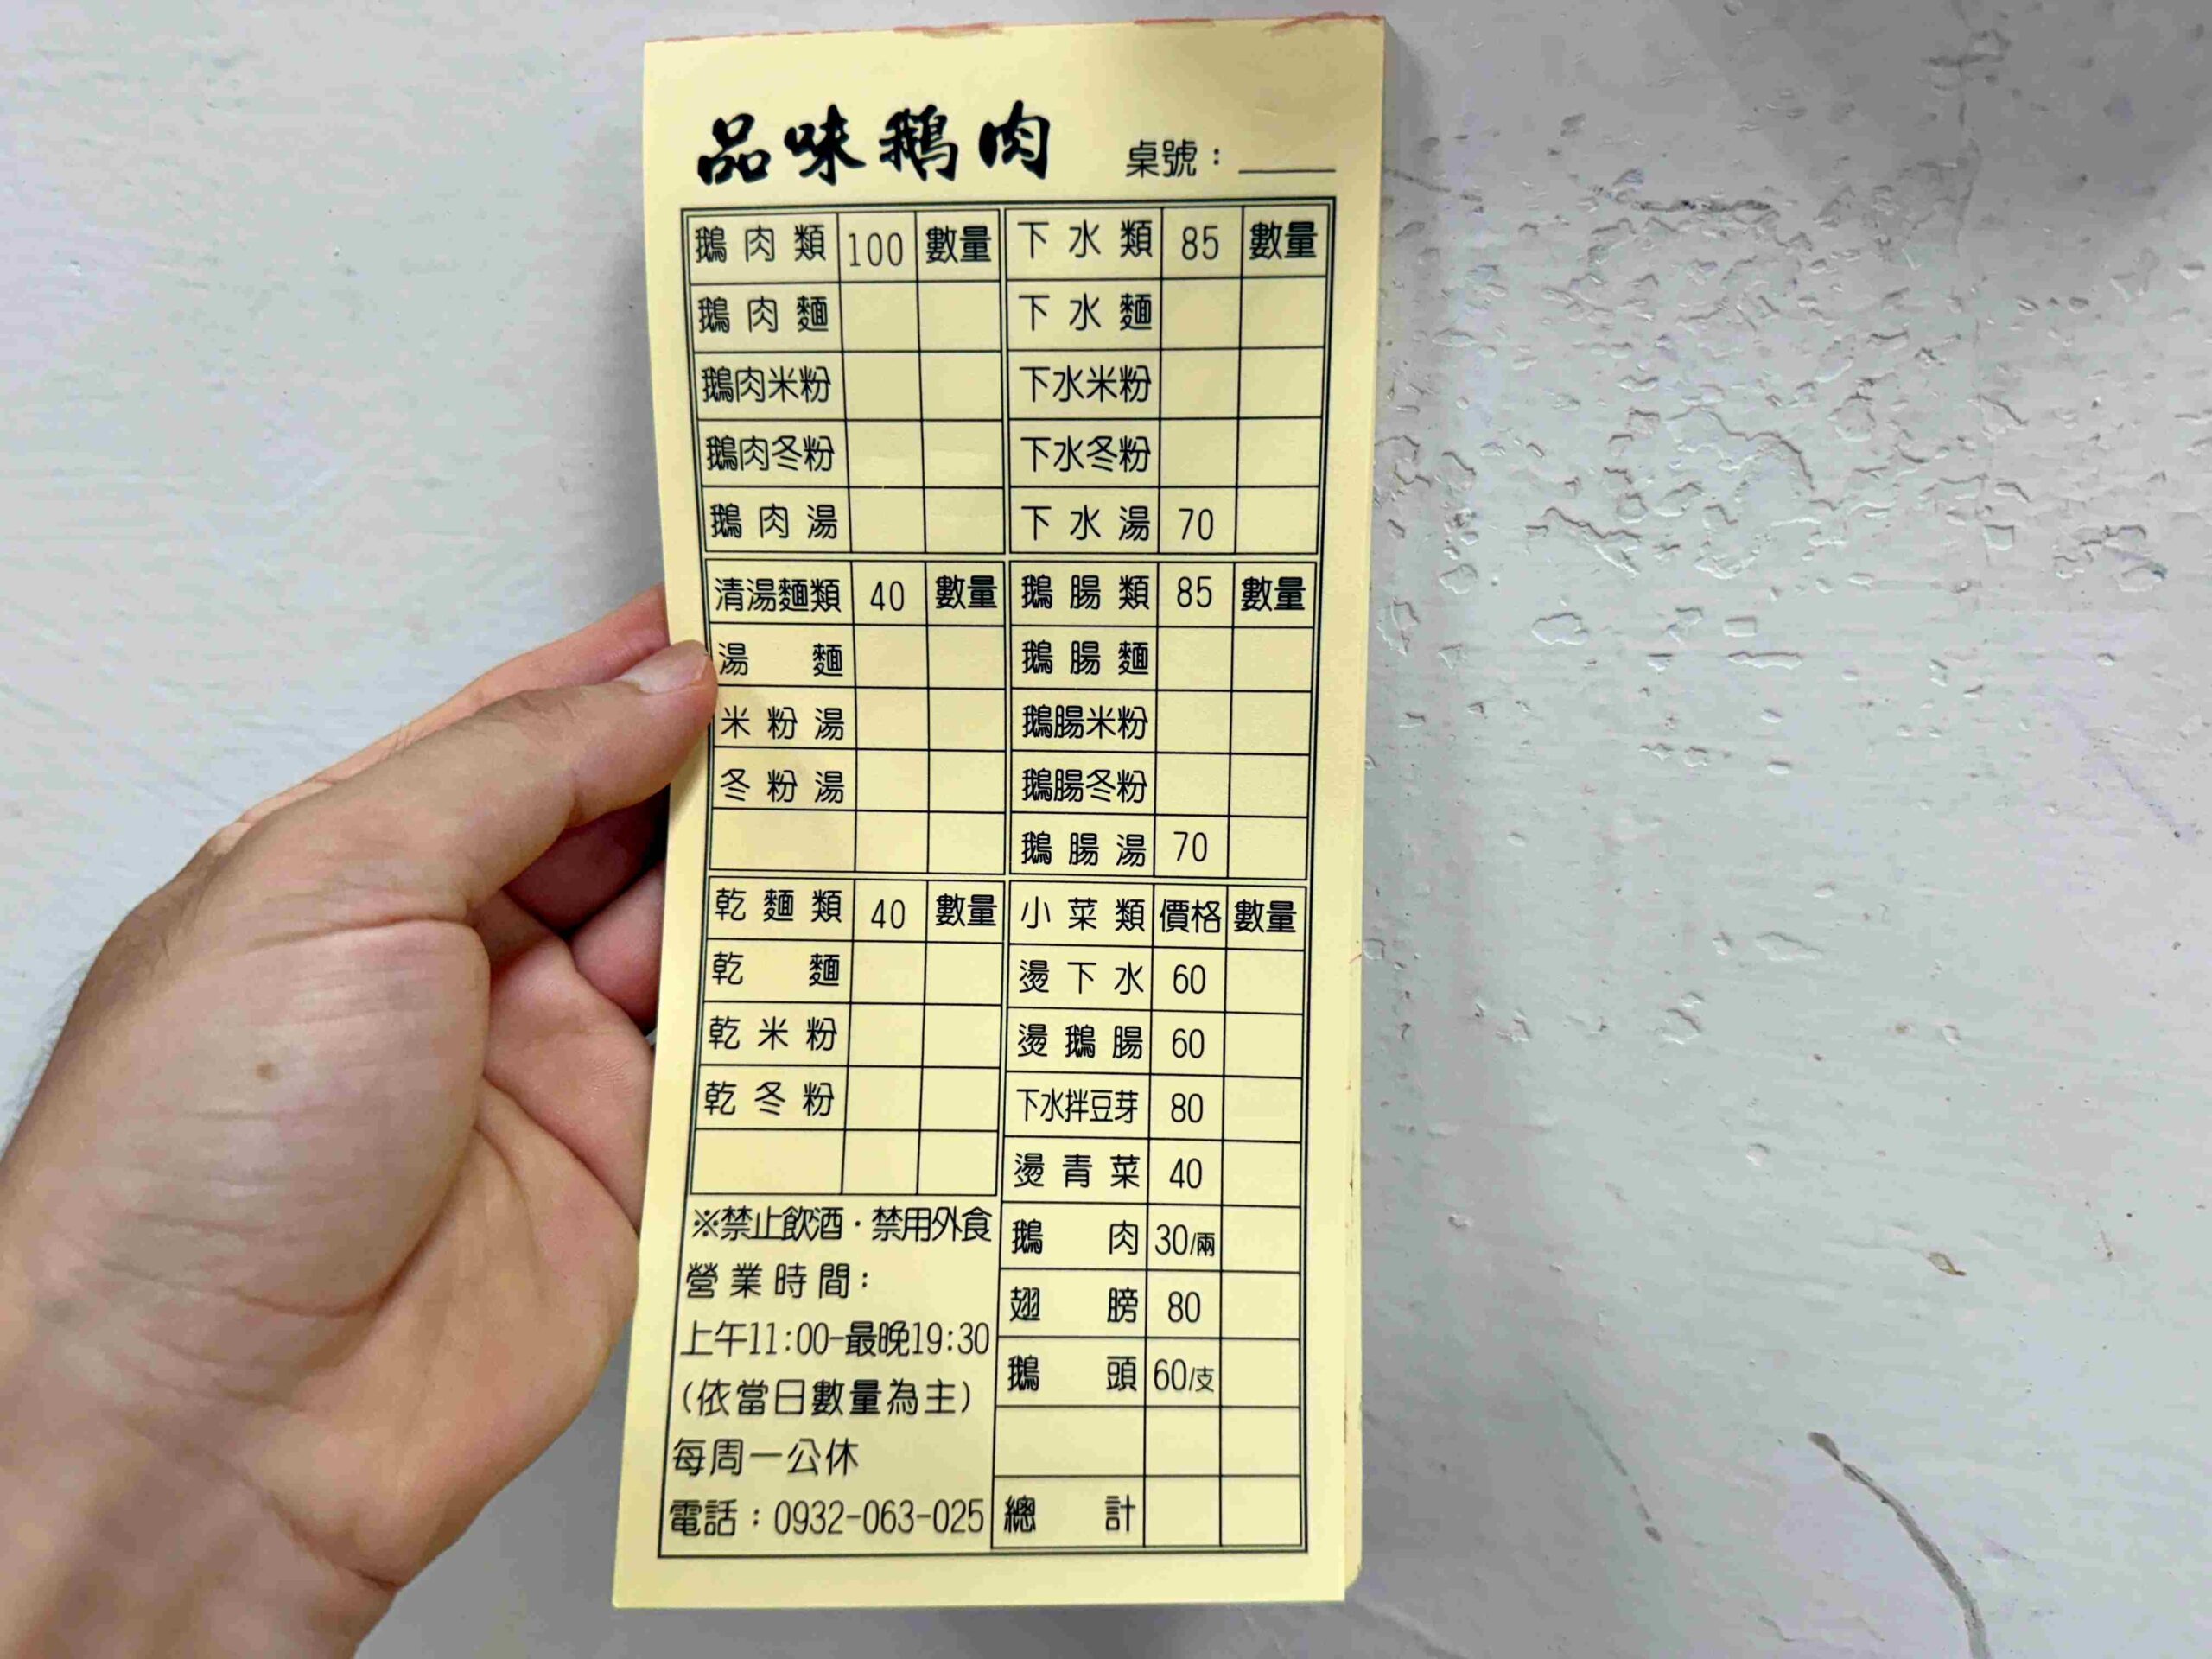 品味鵝肉 桌號：
鵝肉類 100 數量
鵝肉麵
鵝肉米粉
鵝肉冬粉
鵝肉湯
清湯麵類 40 數量
湯麵
米粉湯
冬粉湯
乾麵類 40 數量
乾麵
乾米粉
乾冬粉
※禁止飲酒·禁用外食
營業時間：
上午11:00-最晚19:30
(依當日數量為主)
每周一公休
電話：0932-063-025
下水類 85 數量
下水麵
下水米粉
下水冬粉
下水湯 70
鵝腸類 85 數量
鵝腸麵
鵝腸米粉
鵝腸冬粉
鵝腸湯 70
小菜類 價格 數量
燙下水 60
燙鵝腸 60
下水拌豆芽 80
燙青菜 40
鵝肉 30/兩
翅膀 80
鵝頭 60/支
總計